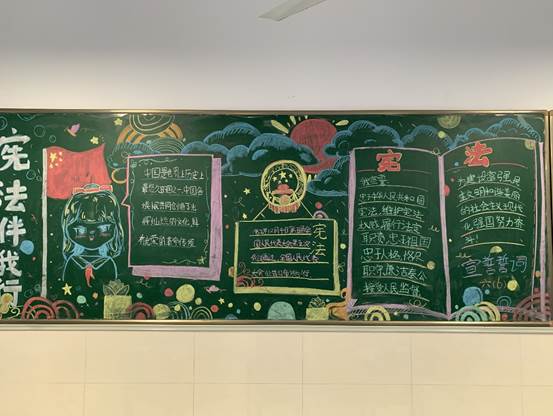 宪法伴我行
中国是世界上历史
最悠久的国家之一中国各
族人民共同创造了光
辉灿烂的文化，具
有光荣的革命传统
宪法
宪 法
我宣誓
忠于中华人民共和国
宪法，维护宪法
权威，履行法定
职责，忠于祖国
忠于人民，恪尽
职守，廉洁奉公
接受人民监督
为建设富强民
主文明和谐美丽
的社会主义现代
化强国努力奋
斗！
宣誓誓词
六(6)